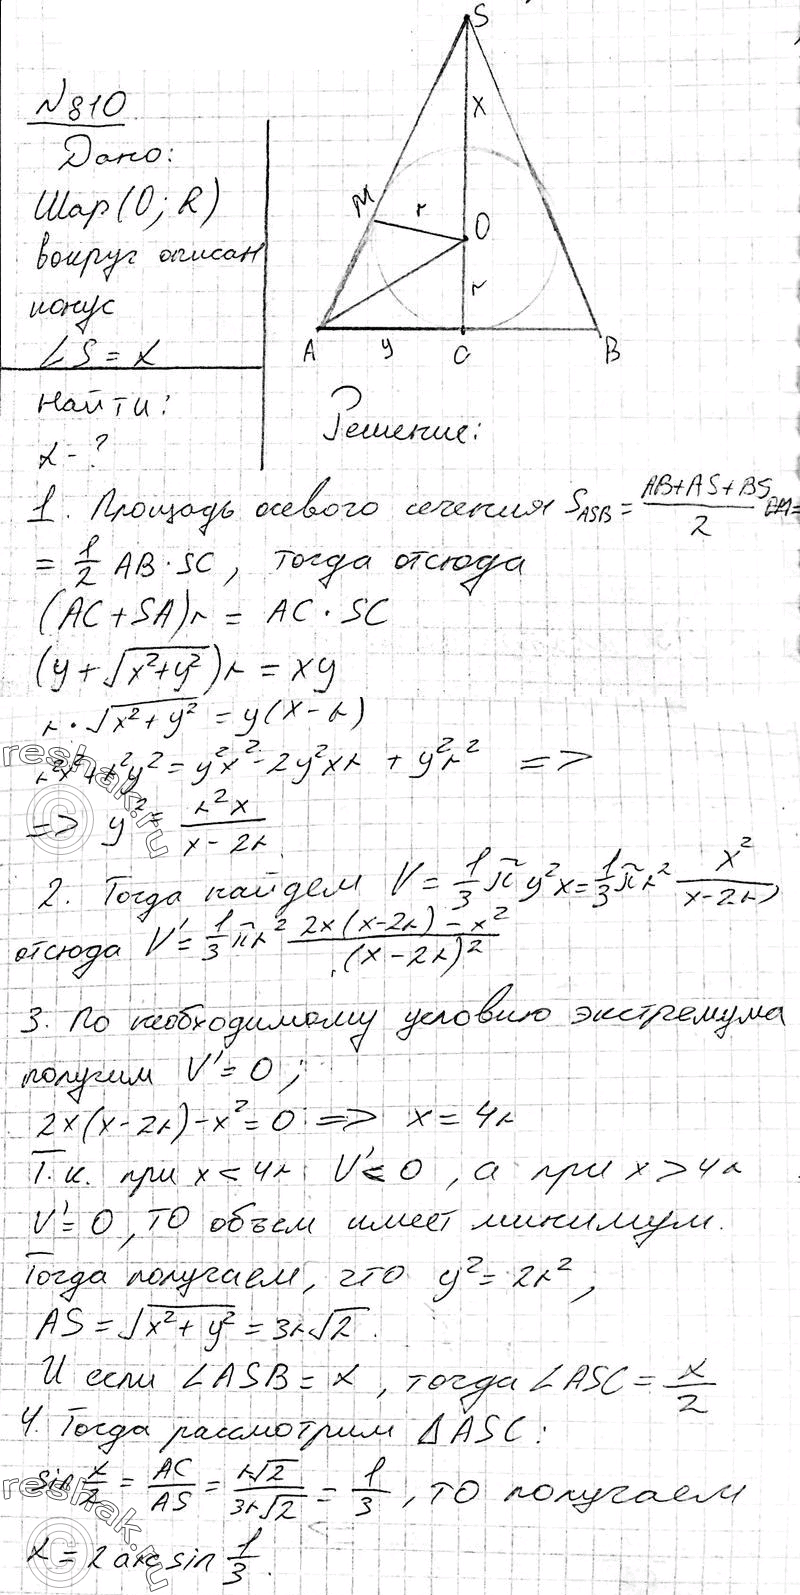 N810
Дано:
Шар (O; R)
вокруг описан
конус
∠S = α
Найти:
α - ?
S
x
M
r
O
r
A
y
C
B
Решение:
1. Площадь осевого сечения S_ASB = (AB+AS+BS)/2 =
= 1/2 AB · SC, тогда отсюда
(AC + SA)r = AC · SC
(y + √(x²+y²))r = xy
r · √(x²+y²) = y(x - r)
r²x² + r²y² = y²x² - 2y²xr + y²r² =>
=> y² = r²x/(x - 2r)
2. Тогда найдем V = 1/3 π y²x = 1/3 π r² x²/(x-2r),
отсюда V' = 1/3 π r² (2x(x-2r) - x²)/(x-2r)²
3. По необходимому условию экстремума
получим V' = 0;
2x(x-2r) - x² = 0 => x = 4r
Т.к. при x < 4r V' < 0, а при x > 4r
V' = 0, то объем имеет минимум.
Тогда получаем, что y² = 2r²,
AS = √(x²+y²) = 3r√2.
И если ∠ASB = α, тогда ∠ASC = α/2
4. Тогда рассмотрим ΔASC:
sin α/2 = AC/AS = r√2/3r√2 = 1/3, то получаем
α = 2 arcsin 1/3.
reshak.ru
reshak.ru